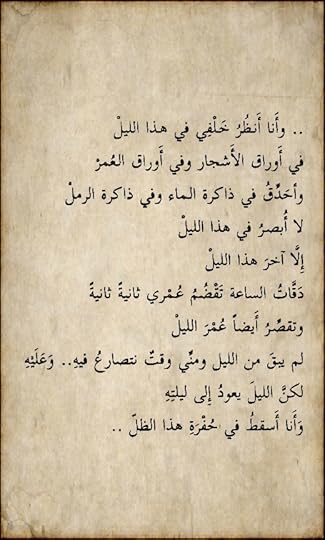 .. وأَنا أَنظُرُ خَلْفِي في هذا الليلْ
في أَوراق الأَشجار وفي أَوراق العُمرْ
وأحَدِّقُ في ذاكرة الماء وفي ذاكرة الرملْ
لا أُبصرُ في هذا الليلْ
إِلَّا آخرَ هذا الليلْ
دَقَّاتُ الساعة تَقْضُمُ عُمْري ثانيةً ثانيةً
وتقصِّرُ أَيضاً عُمْرَ الليلْ
لم يبقَ من الليل ومنِّي وقتٌ نتصارعُ فيهِ.. وَعَلَيْهِ
لكنَّ الليلَ يعودُ إِلى ليلتِهِ
وَأَنا أَسقطُ في حُفْرَةِ هذا الظلّ ..